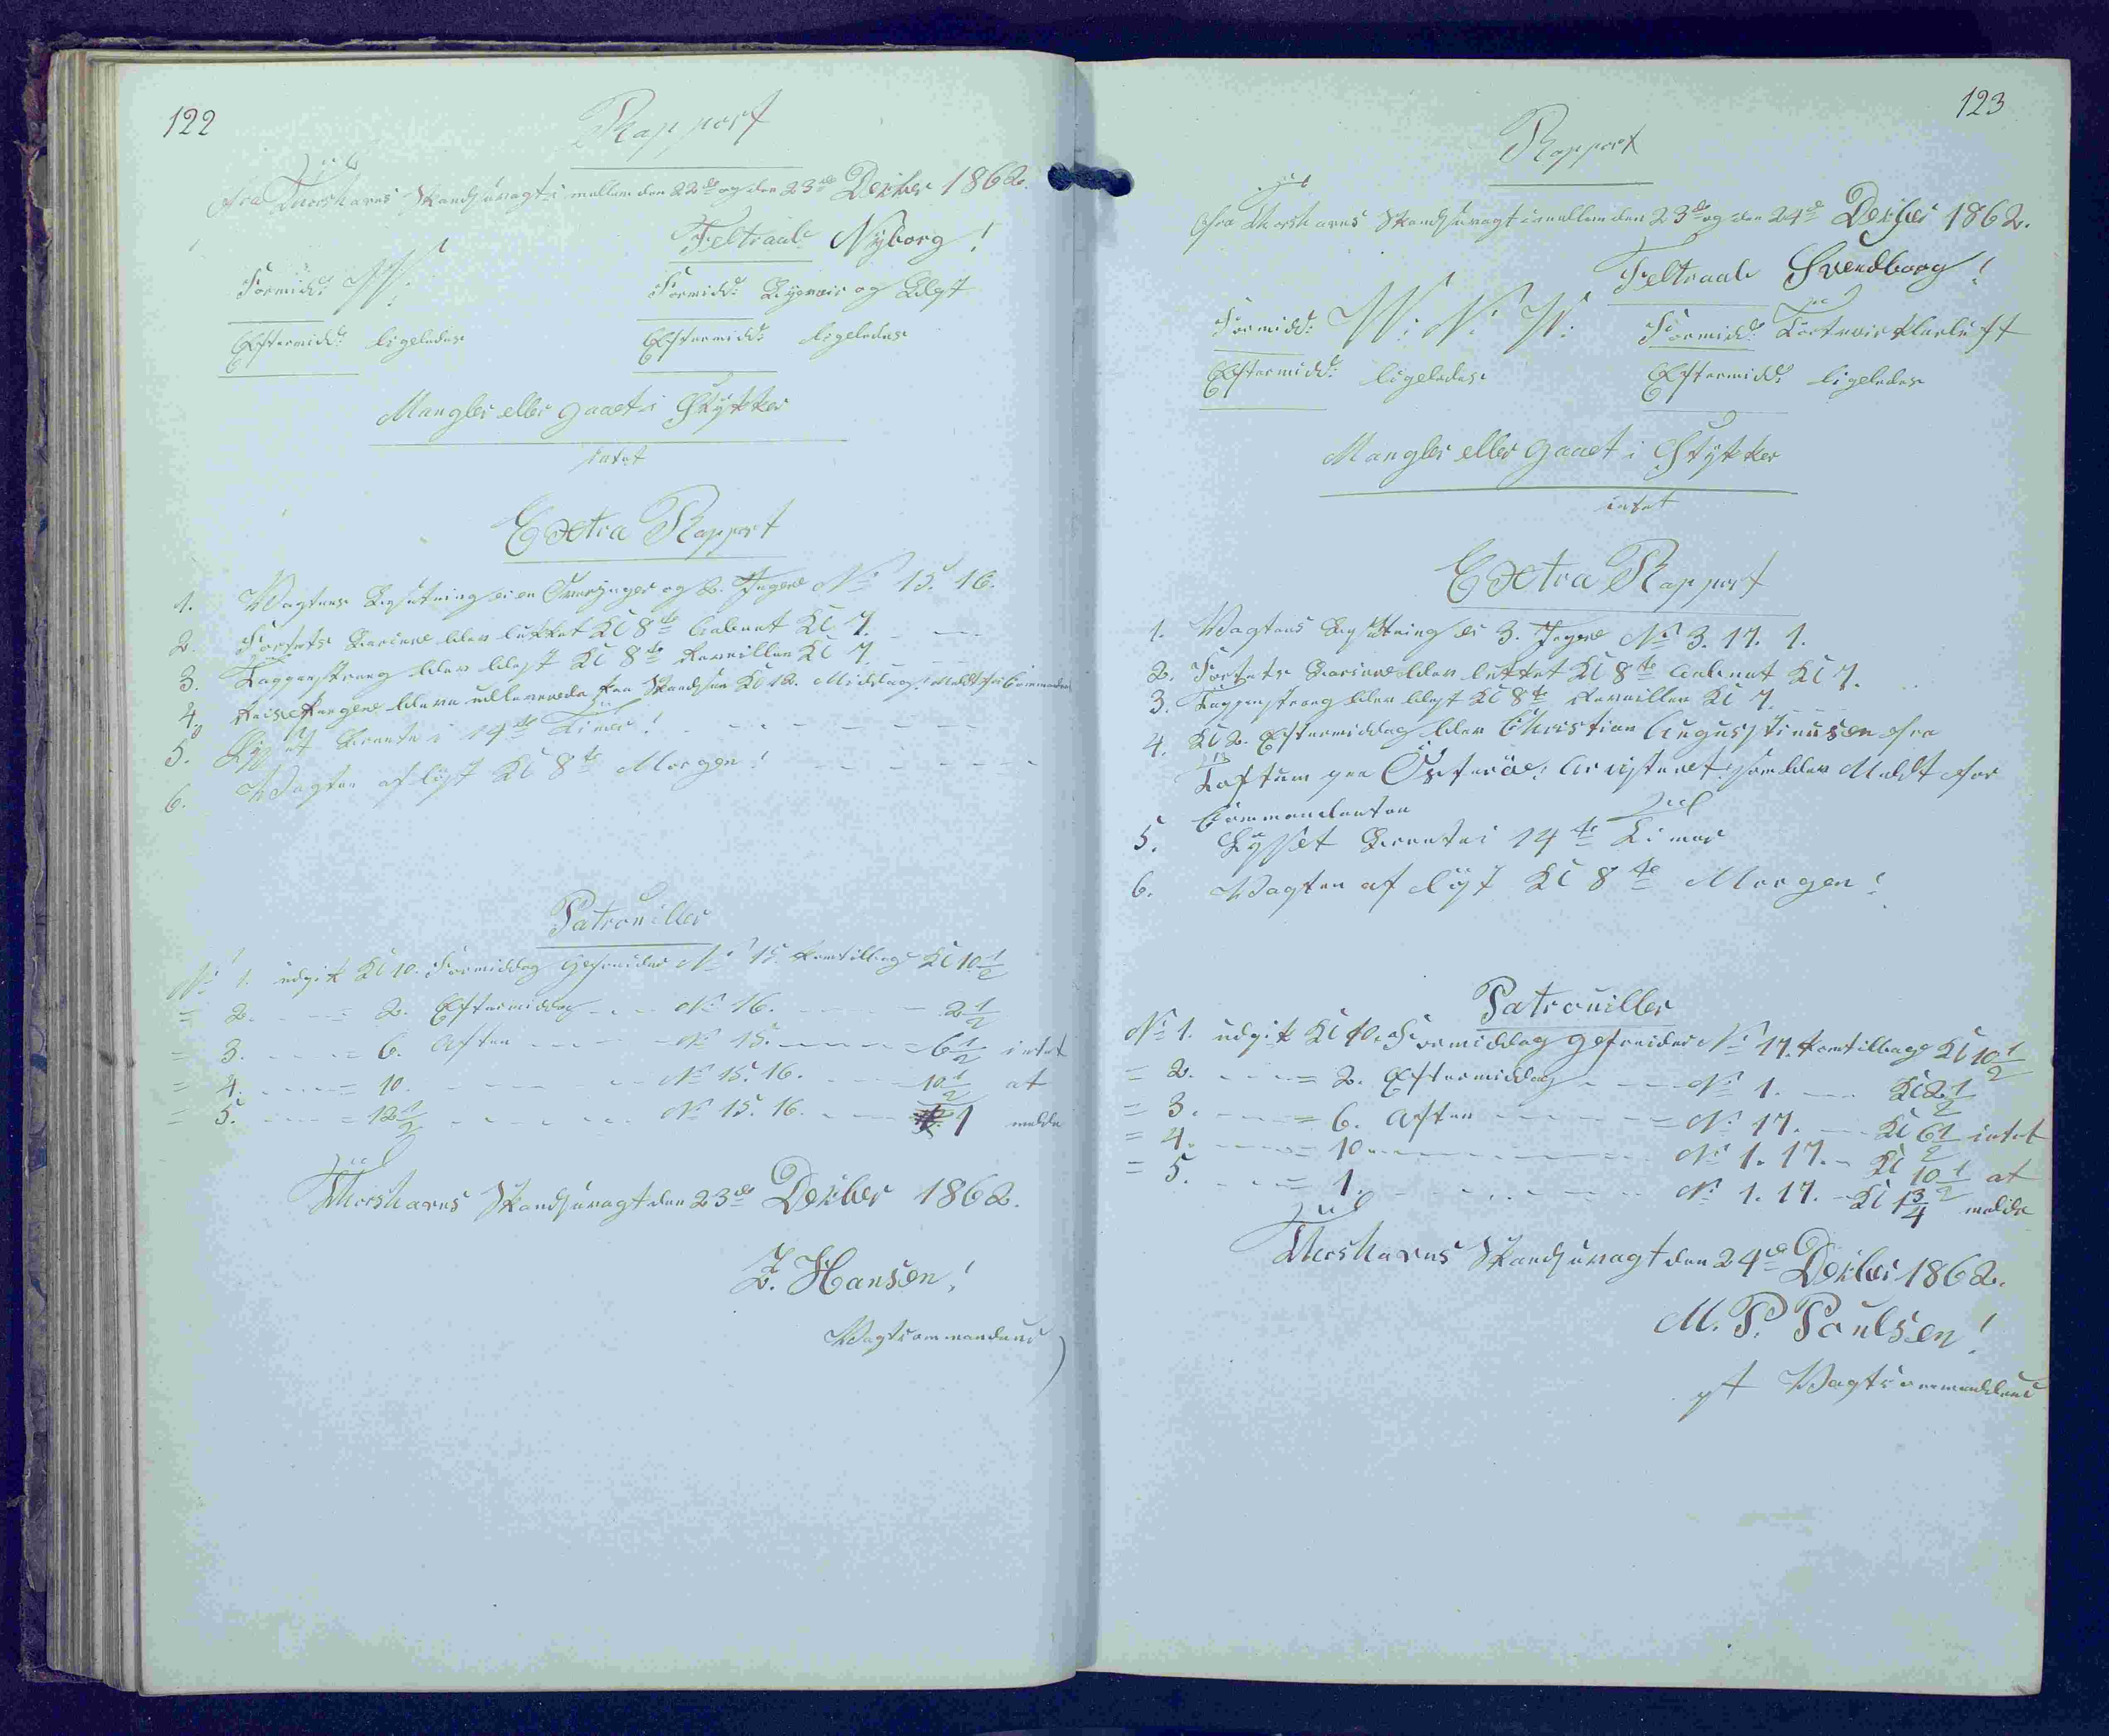 122
Rapport
fra Thorshavns Skandsevagt imellem den 22de og den 23de Decbr 1862.
Feltraab Nÿborg!
Formidd: W: Formidd: Bygveir og Blæst
Eftermidd: ligeledes Eftermidd: ligeledes
Mangler eller gaaet i Stÿkker
intet
Extra Rapport
1. Vagtens Besætning er en Overjæger og 2. Jægere No 15. 16.
2. Fortets Barriere blev lukket Kl 8te aabnet Kl 7.
3. Tappenstreng blev blæst Kl 8te Reveillen Kl 7.
4. blev Skandsen Kl 12. Middag, Meldt for Commandanten
5. Lÿset brente i 14de Timer!
6. Vagten aflöst Kl 8te Morgen!
Patrouiller
No 1. udgik Kl 10. Formiddag Gefreider No 15. kom tilbage Kl 10 1/2
= 2. = 2. Eftermiddag No 16. 2 1/2
= 3. = 6. Aften No 15. = 6 1/2 intet
= 4. = 10. No 15. 16. 10 1/2 at
= 5. = 12 1/2 No 15. 16. 1 melde
Thorshavns Skandsevagt den 23de Decber 1862.
Z. Hansen!
Vagtcommandeur
123
Rapport
fra Thorshavns Skandsevagt imellem den 23de og den 24de Decbr 1862.
Feltraab Svendborg!
Formidd: W: N: W: Formidd: Törtveir Klarluft
Eftermidd: ligeledes Eftermidd: ligeledes
Mangler eller gaaet i Stÿkker
intet
Extra Rapport
1. Vagtens Besætning er 3. Jægere No 3. 17. 1.
2. Fortets Barriere blev lukket Kl 8te aabnet Kl 7.
3. Tappenstreng blev blæst Kl 8te Reveillen Kl 7.
4. Kl 2. Eftermiddag blev Christian Augustinusen fra
Toftum paa Österöe, Arresteret som blev Meldt for
Commandanten
5. Lÿset brente i 14de Timer
6. Vagten aflöst Kl 8te Morgen!
Patrouiller
No 1. udgik Kl 10. Formiddag Gefreider No 17. kom tilbage Kl 10 1/2
= 2. = 2. Eftermiddag No 1. Kl 2 1/2
= 3. = 6. Aften No 17. Kl 6 1/2 intet
= 4. = 10 No 1. 17. Kl 10 1/2 at
= 5. = 1. No 1. 17. Kl 1 3/4 melde
Thorshavns Skandsevagt den 24de Decbr 1862.
M. P. Poulsen!
pt Vagtcommandeur